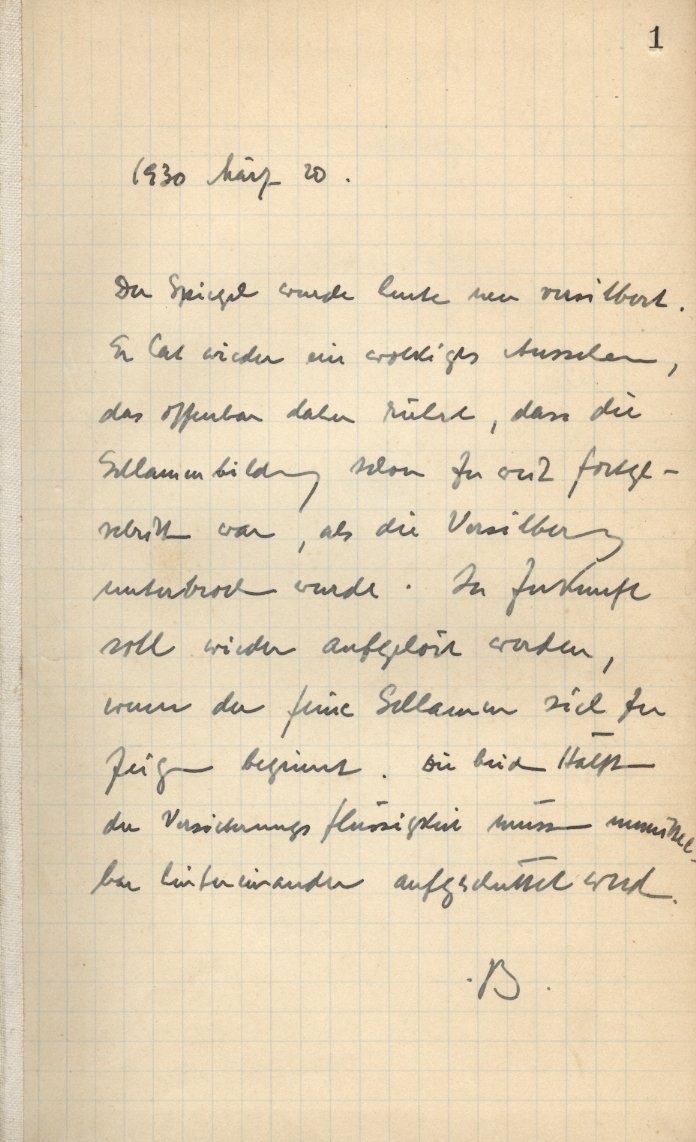 1
1930 März 20.
Der Spiegel wurde heute neu versilbert.
Er hat wieder ein wolkiges Aussehen,
das offenbar daher rührt, dass die
Schlammbildung schon zu weit fortge-
schritten war, als die Versilberung
unterbrochen wurde. In Zukunft
soll wieder aufgehört werden,
wenn der feine Schlamm sich zu
zeigen beginnt. Die beiden Hälften
der Versilberungsflüssigkeit müssen unmittel-
bar hintereinander aufgeschüttet werden.
B.